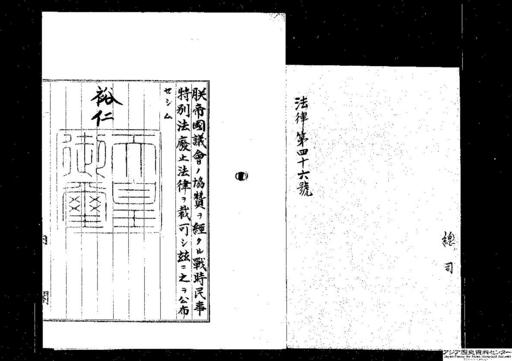 法律第四十六號
總司
朕帝國議會ノ協贊ヲ經タル戰時民事
特別法廢止法律ヲ裁可シ茲ニ之ヲ公布
セシム
裕仁
天皇御璽
アジア歴史資料センター